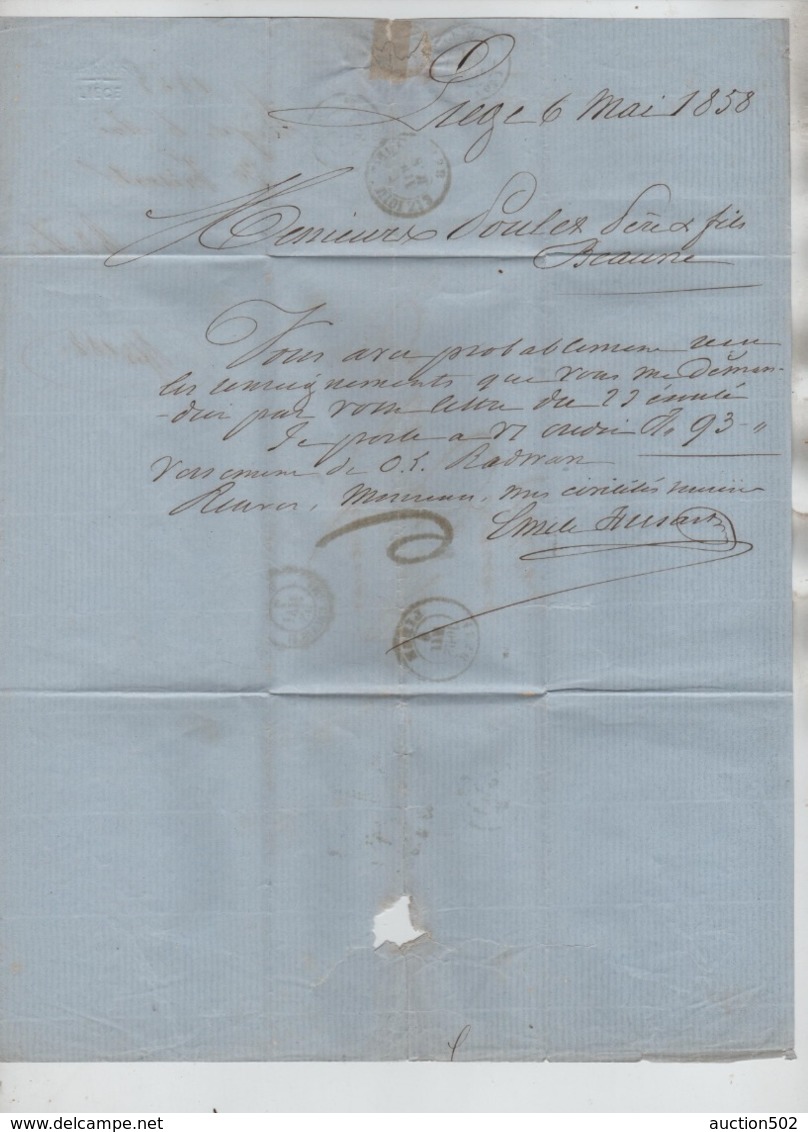 LIEGE
Liége 6 Mai 1858
Messieurs Poulet Père & fils
Beaune
Vous avez probablement reçu
les renseignements que vous me deman-
-diez par votre lettre du 22 écoulé
Je porte a Vt crédit f. 93 - "
versement de O. L. Radwan
Recevez, Messieurs, mes civilités
Emile Husart
auction502
delcampe.net